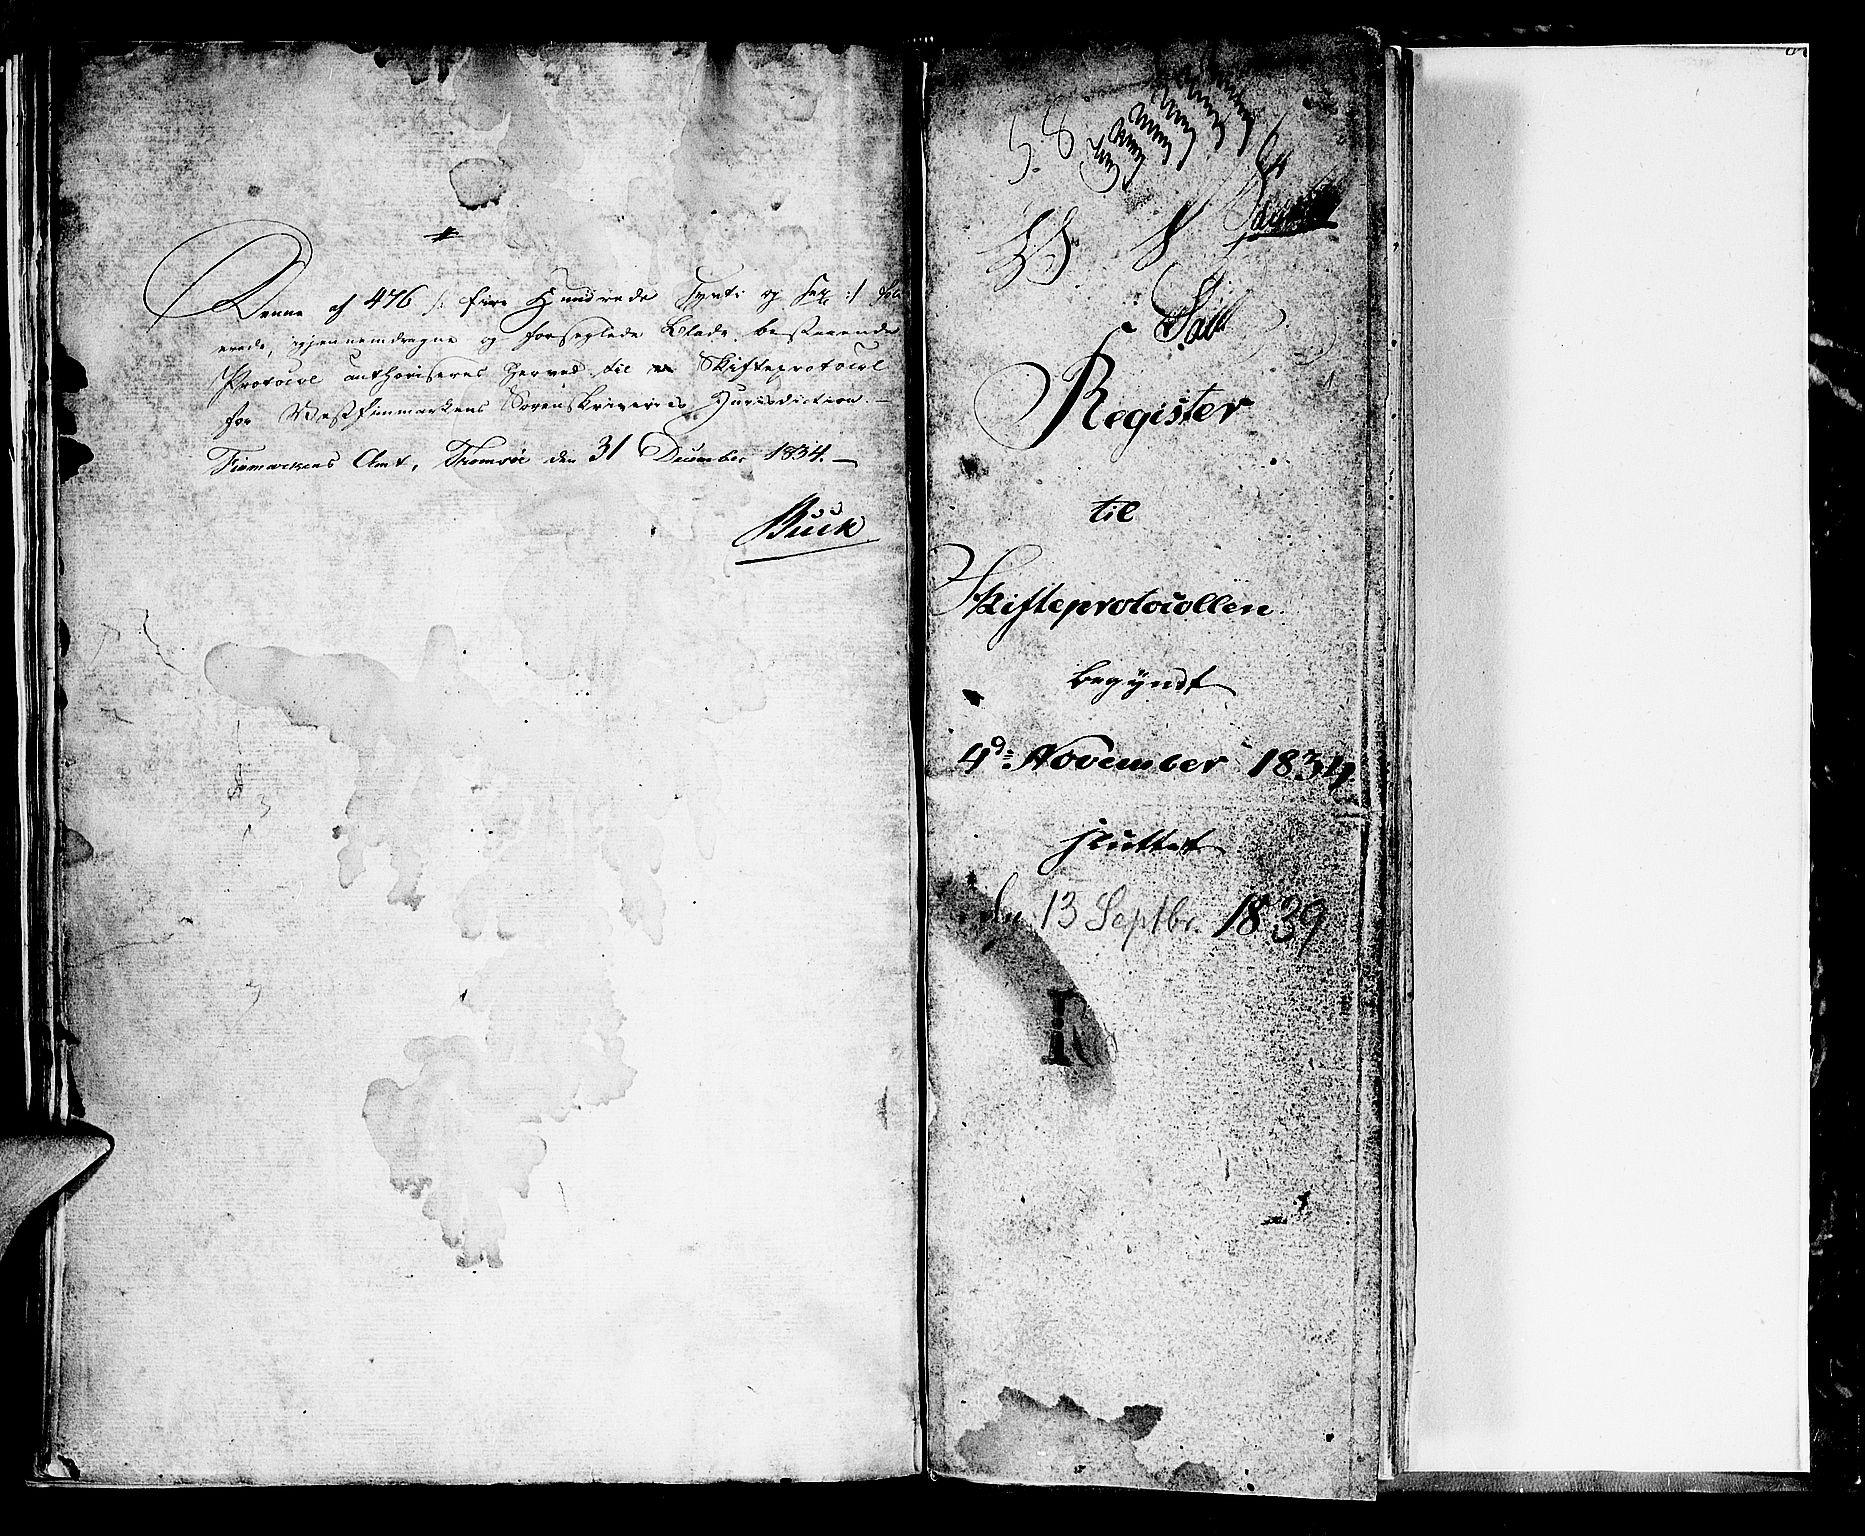 Denne af 476 /: fire Hundrede Sytti og Sex :/ foli
erede, igjennemdragne og forseglede Blade bestaaende
Protocol authoriseres herved til Skifteprotocol
for Westfinmarkens Sorenskriveries Jurisdiction. —
Finmarkens Amt, Tromsöe den 31 December 1834. —
Buck
5. 8
Register
til
Skifteprotocollen
begÿndt
4d: November 1834
sluttet
13 Septbr. 1839
R